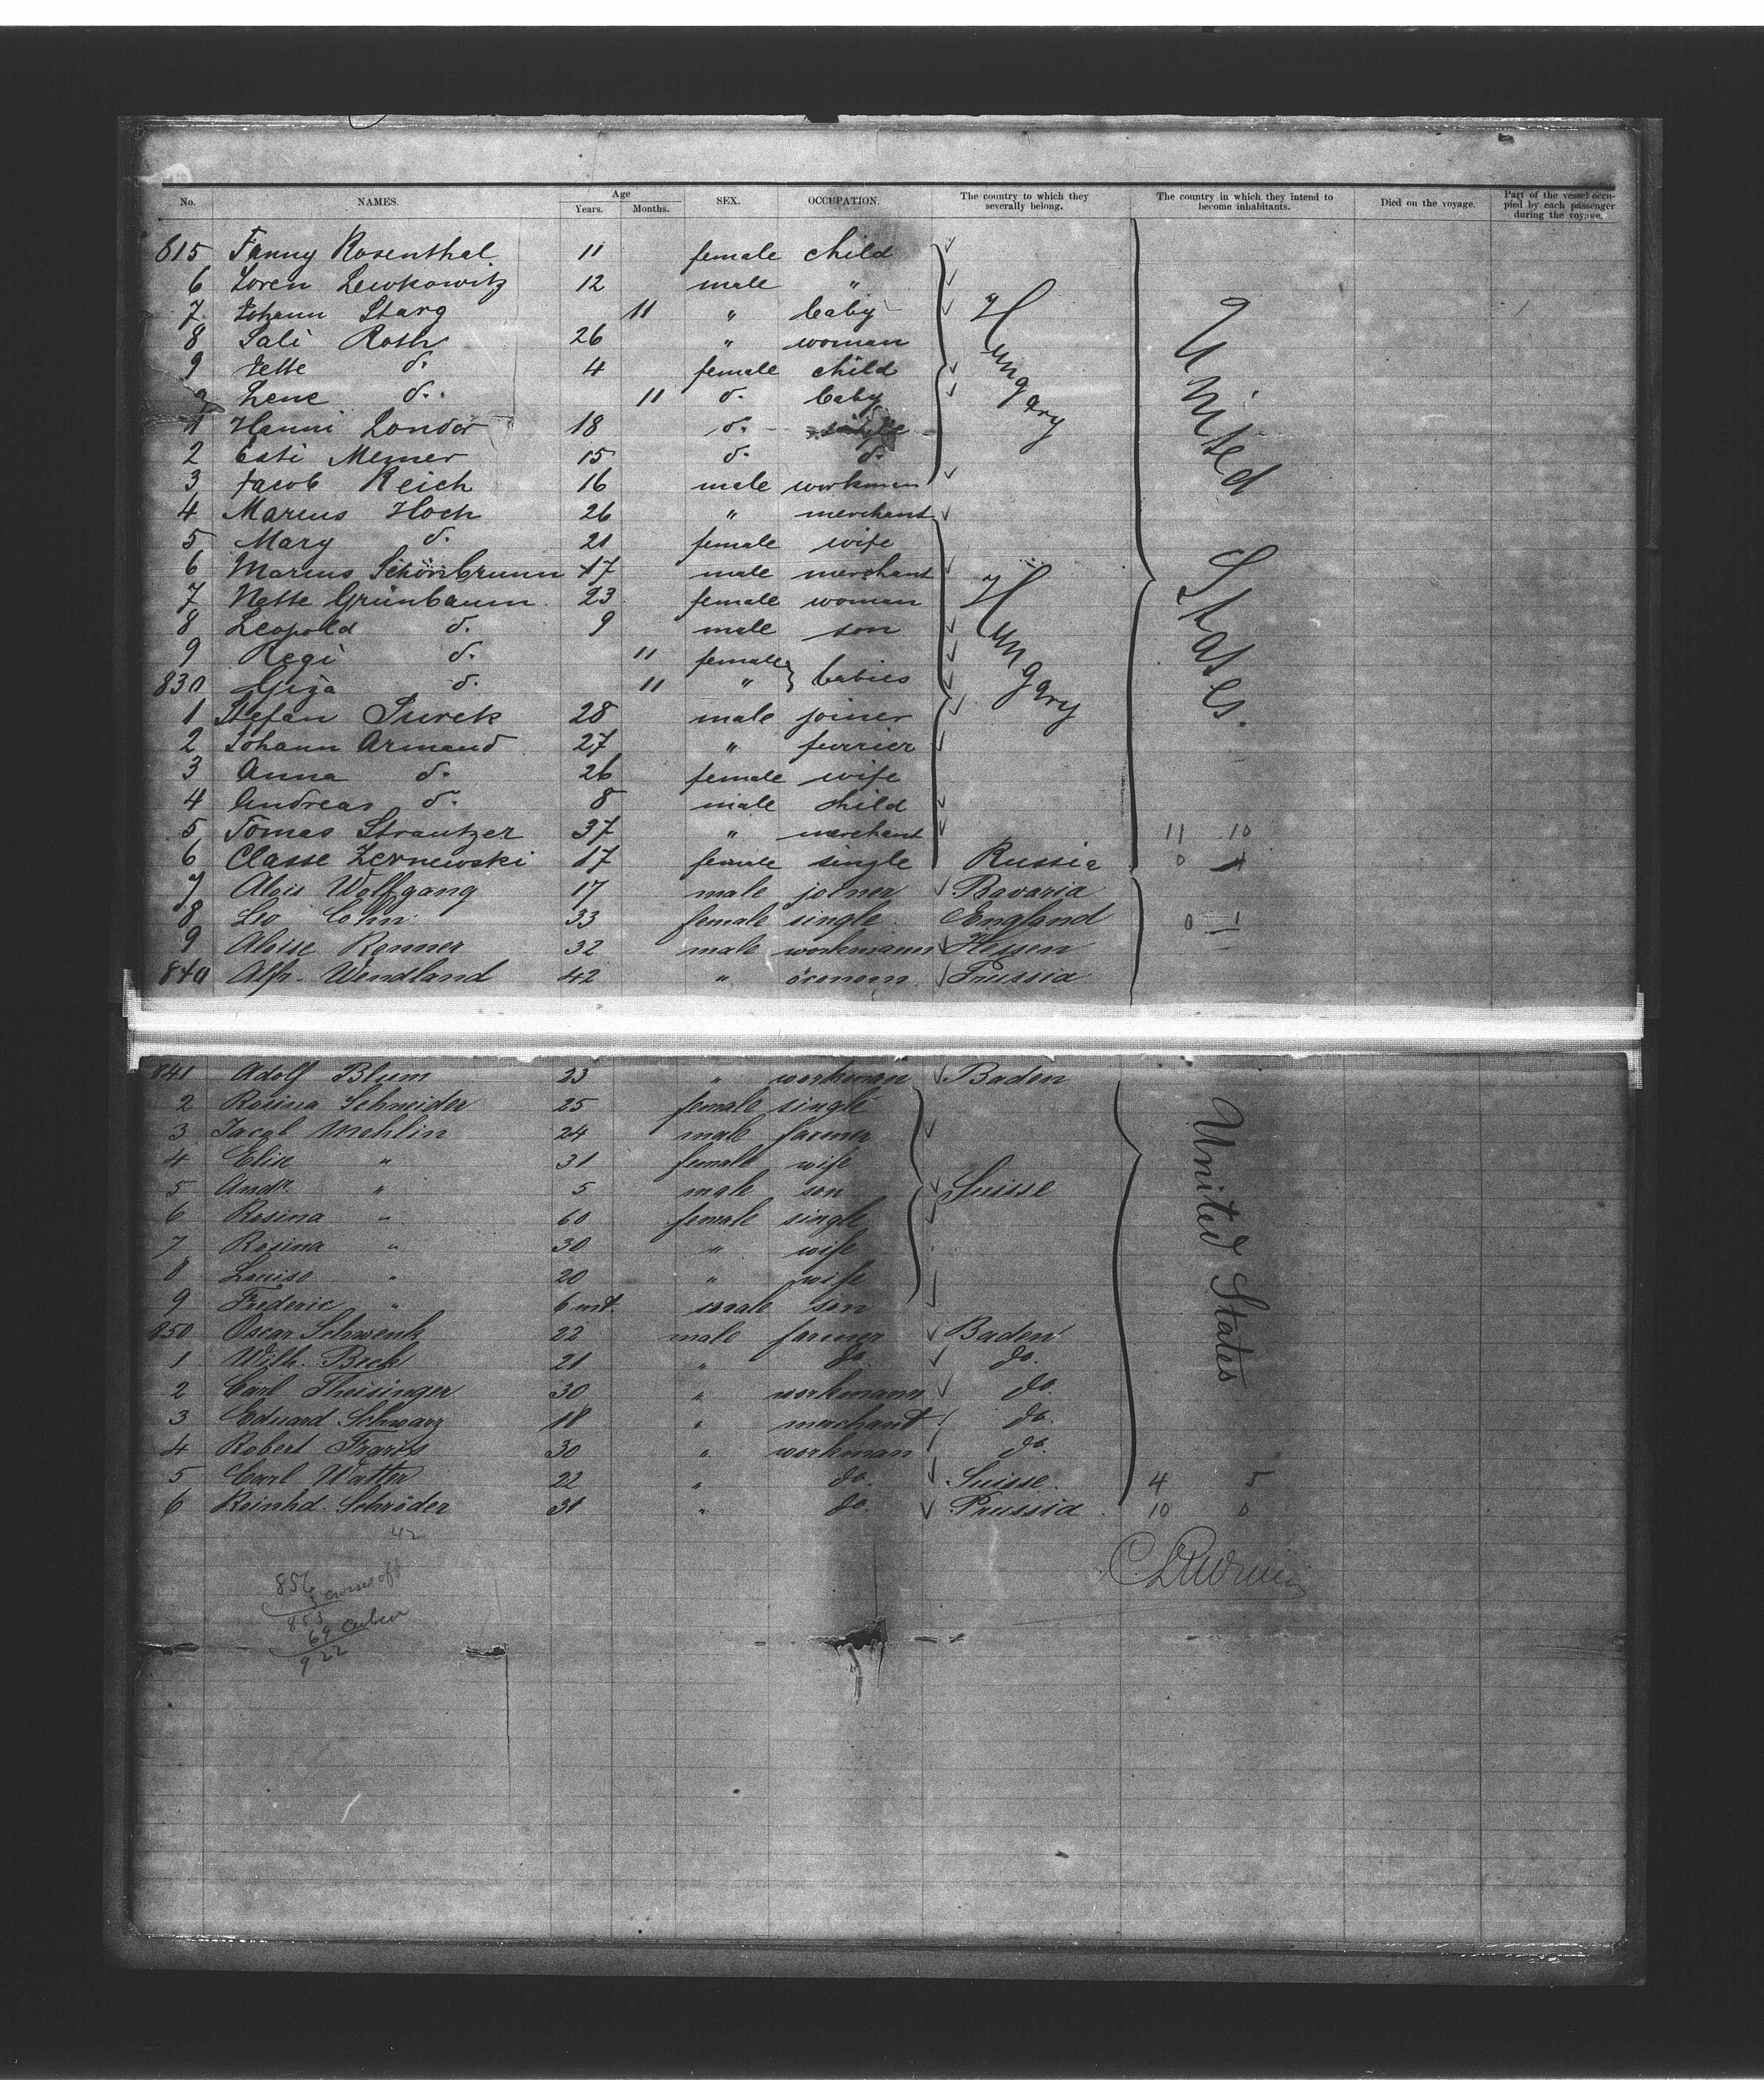 No. NAMES. Age Years. Months. SEX. OCCUPATION. The country to which they severally belong. The country in which they intend to become inhabitants. Died on the voyage. Part of the vessel occupied by each passenger during the voyage.
815 Fanny Rosenthal 11 female child
6 Loren Lewkowitz 12 male "
7 Johann Starg 11 " baby
8 Sali Roth 26 " woman
9 Jette d. 4 female child
Lene d. 11 d. baby
1 Hanni Londor 18 d. single
2 Esti Mezner 15 d. d.
3 Jacob Reich 16 male workman
Hungary
4 Marcus Hoch 26 " merchant
5 Mary d. 21 female wife
6 Marcus Schönbrunn 17 male merchant
7 Nette Grünbaum 23 female woman
8 Leopold d. 9 male son
9 Regi d. 11 female
830 Giza d. 11 " babies
1 Stefan Turek 28 male joiner
Hungary
2 Johann Armand 27 " furrier
3 Anna d. 26 female wife
4 Andreas d. 8 male child
5 Tomas Strautzer 37 " merchant 11 10
6 Classe Zernewski 17 female single Russia 0 1
United States.
7 Alois Wolfgang 17 male joiner Bavaria
8 Leo Cohn 33 female single England 0 1
9 Aloise Renner 32 male workmann Hessen
840 Alfr. Wendland 42 " öconom Prussia
841 Adolf Blum 23 " workman Baden
2 Rosina Schneider 25 female single
3 Jacob Mehlin 24 male farmer
4 Elise " 31 female wife
5 Andr. " 5 male son Suisse
6 Rosina " 60 female single
7 Rosina " 30 " wife
8 Louise " 20 " wife
9 Frederic " 6 mt. male son
850 Oscar Schwenk 22 male farmer Baden
1 Wilh. Beck 21 " do. do.
2 Carl Theisinger 30 " workmann do.
3 Eduard Schwarz 18 " merchant do.
4 Robert 30 " workman do.
5 Carl Watter 22 " do. Suisse. 4 5
6 Reinhd. Schröder 31 " do. Prussia 10 0
United States
42
856
3 crossed off
853
69
922